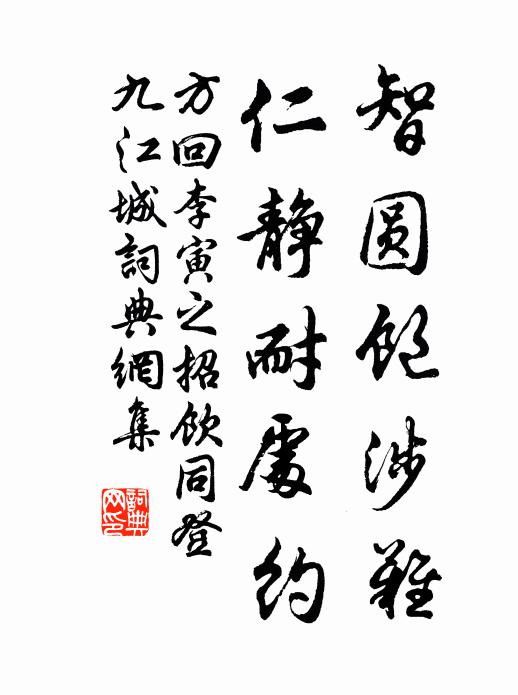 智圆饱涉难
仁静耐處约
方回李寅之招飲同登
九江城詞典網集
詞典网印